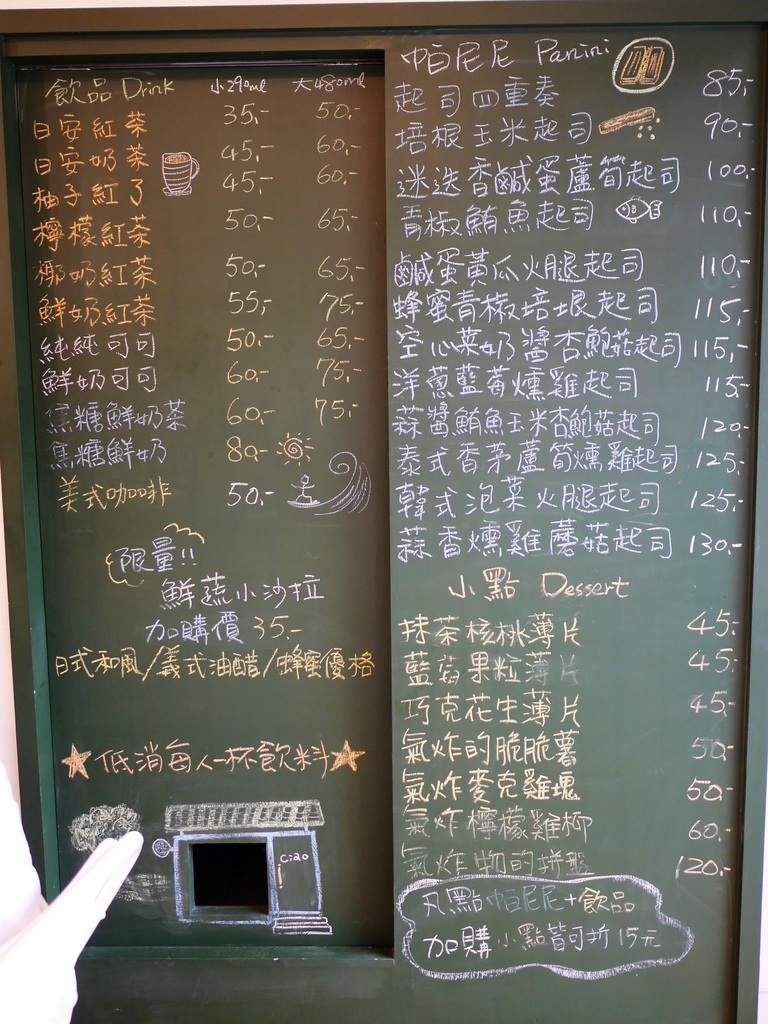 飲品 Drink 小290ml 大480ml
日安紅茶 35.- 50.-
日安奶茶 45.- 60.-
柚子紅了 45.- 60.-
檸檬紅茶 50.- 65.-
椰奶紅茶 50.- 65.-
鮮奶紅茶 55.- 75.-
純純可可 50.- 65.-
鮮奶可可 60.- 75.-
焦糖鮮奶茶 60.- 75.-
焦糖鮮奶 80.-
美式咖啡 50.-
限量!!
鮮蔬小沙拉
加購價 35.-
日式和風/義式油醋/蜂蜜優格
★低消每人一杯飲料★
Ciao
帕尼尼 Panini
起司四重奏 85.-
培根玉米起司 90.-
迷迭香鹹蛋蘆筍起司 100.-
青椒鮪魚起司 110.-
鹹蛋黃瓜火腿起司 110.-
蜂蜜青椒培根起司 115.-
空心菜奶醬杏鮑菇起司 115.-
洋蔥藍莓燻雞起司 115.-
蒜醬鮪魚玉米杏鮑菇起司 120.-
泰式香茅蘆筍燻雞起司 125.-
韓式泡菜火腿起司 125.-
蒜香燻雞蘑菇起司 130.-
小點 Dessert
抹茶核桃薄片 45.-
藍莓果粒薄片 45.-
巧克花生薄片 45.-
氣炸的脆脆薯 50.-
氣炸麥克雞塊 50.-
氣炸檸檬雞柳 60.-
氣炸物的拼盤 120.-
凡點帕尼尼+飲品
加購小點皆可折15元